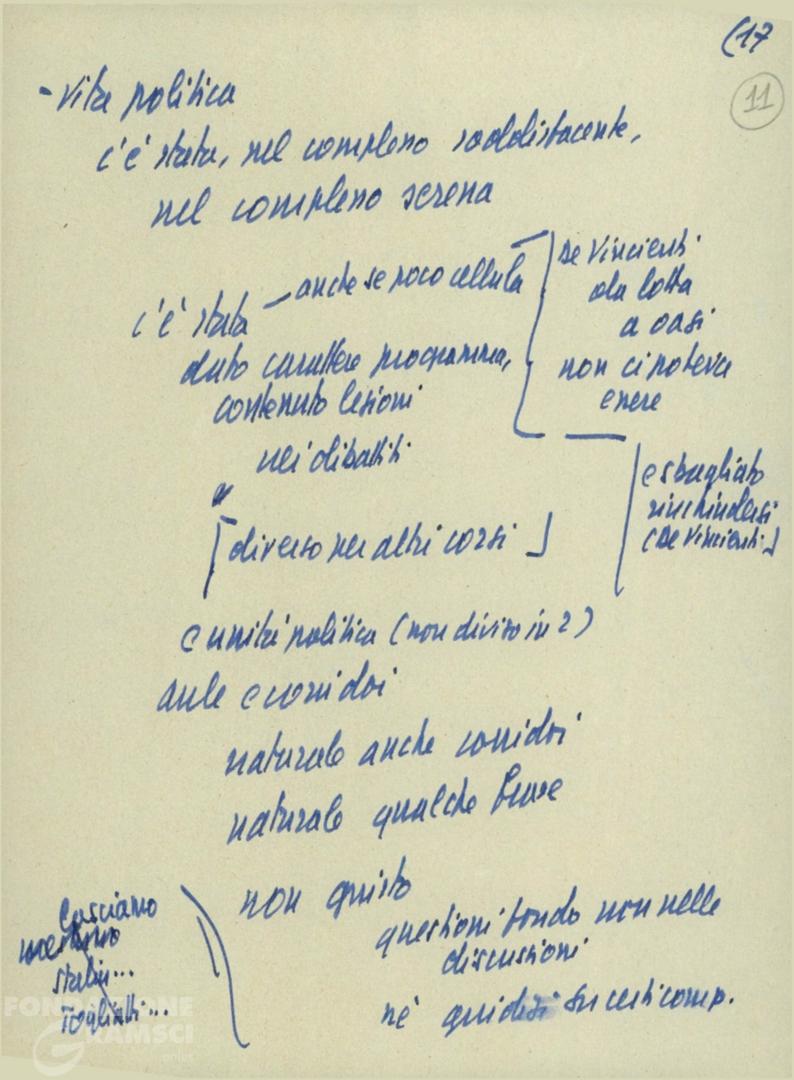 (17
11
- Vita politica
c'è stata, nel complesso soddisfacente,
nel complesso serena
c'è stata — anche se poco cellula
dato carattere programma,
contenuto lezioni
nei dibattiti
De Vincienti
da lotta
a oasi
non ci poteva
essere
e sbagliato
rinchiudersi
(De Vincienti)
[diverso per altri corsi]
e unità politica (non diviso in 2)
aule e corridoi
naturale anche corridoi
naturale qualche
non giusto
questioni fondo non nelle
discussioni
né giudizi su certi comp.
Lasciamo
Stalin...
Togliatti...
FONDAZIONE
GRAMSCI
onlus